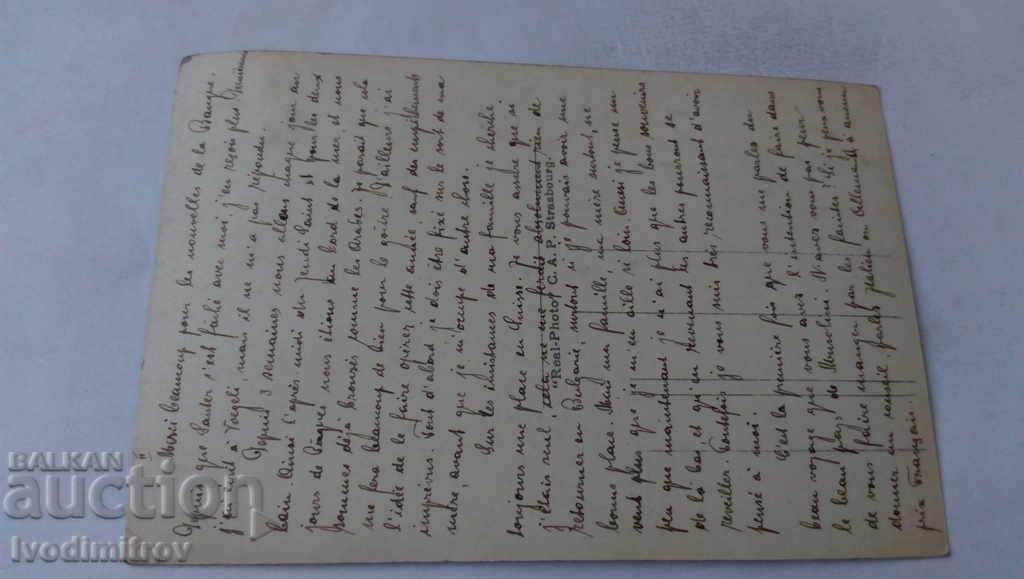 II
Merci beaucoup pour les nouvelles de la Banque.
Depuis que Lauder s'est faché avec moi j'en reçois plus
j'ai écrit à Fageli, mais il ne m'a pas répondu.
Depuis 3 semaines nous allons chaque jour au
bain. Ainsi l'après-midi du jeudi saint et pour les deux
jours de Pâques nous étions au bord de la mer et nous
sommes déjà bronzés comme les Arabes. Je parait que cela
me fera beaucoup de bien pour le goître. D'ailleurs j'ai
l'idée de le faire opérer cette année sauf des empêchements
imprévus. Tout d'abord je dois être fixé sur le sort de ma
mère, avant que je m'occupe d'autre chose.
Sur les instances de ma famille je cherche
toujours une place en Suisse. Je vous assure que si
j'étais seul, cela ne me ferait absolument rien de
"Real-Photo" C. A. P. Strasbourg.
retourner en Bulgarie, surtout si je pouvais avoir une
bonne place. Mais ma famille, ma mère surtout, ne
veut plus que je m'en aille si loin. Ainsi je pense un
peu que maintenant je n'ai plus que les bons souvenirs
de là-bas et qu'en revenant les autres pourront se
reveiller. Toutefois je vous suis très reconnaissant d'avoir
pensé à moi.
C'est la première fois que vous me parlez du
beau voyage que vous avez l'intention de faire dans
le beau pays de Mussolini. N'avez vous pas peur
de vous faire manger par les fascistes? Si je peux vous
donner un conseil, parlez Italien ou Allemand à aucun
prix Français.
BALKAN
auction
Ivodimitrov